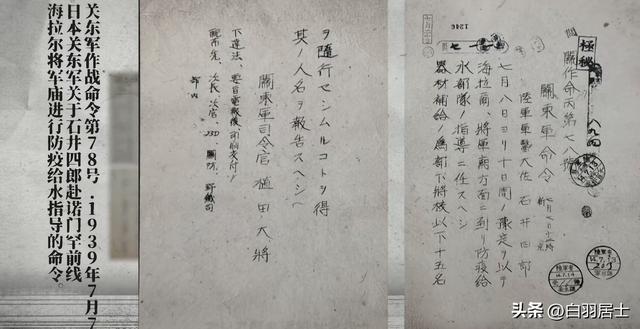 关东军作战命令第78号.1939年7月7
日本关东军关于石井四郎赴诺门罕前线
海拉尔将军庙进行防疫给水指导的命令。
1246
極秘
關作命丙第七八號
關東軍命令
陸軍軍醫大佐 石井四郎
七月八日ヨリ十日間ノ豫定ヲ以テ
海拉爾、將軍廟方面ニ到リ防疫給
水部隊ノ指導ニ任スヘシ
器材補給ノ爲部下將校以下十五名
ヲ隨行セシムルコトヲ得
其ノ人名ヲ報告スヘシ
關東軍司令官 植田大將
下達法、要旨電報後、印刷交付
配布先、次長、次官、
部内
头条 @白羽居士